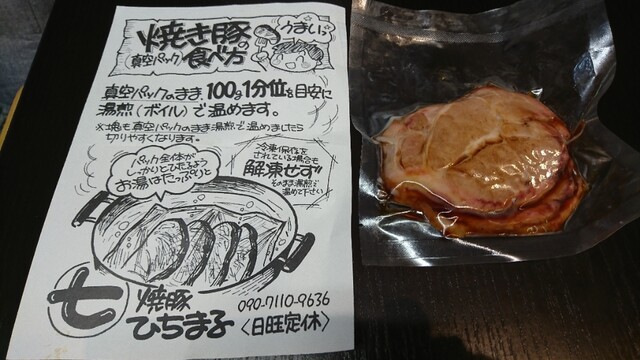 焼き豚の
(真空パック)食べ方
うまいっ
真空パックのまま100g1分位を目安に
湯煎(ボイル)で温めます。
※塊も真空パックのまま湯煎で温めましたら
切りやすくなります。
冷凍保存を
されている場合も
解凍せず
そのまま湯煎で
温めて下さい!
パック全体が
しっかりとひたるよう
お湯はたっぷりと
七
焼豚
ひちまる
090-7110-9636
〈日旺定休〉